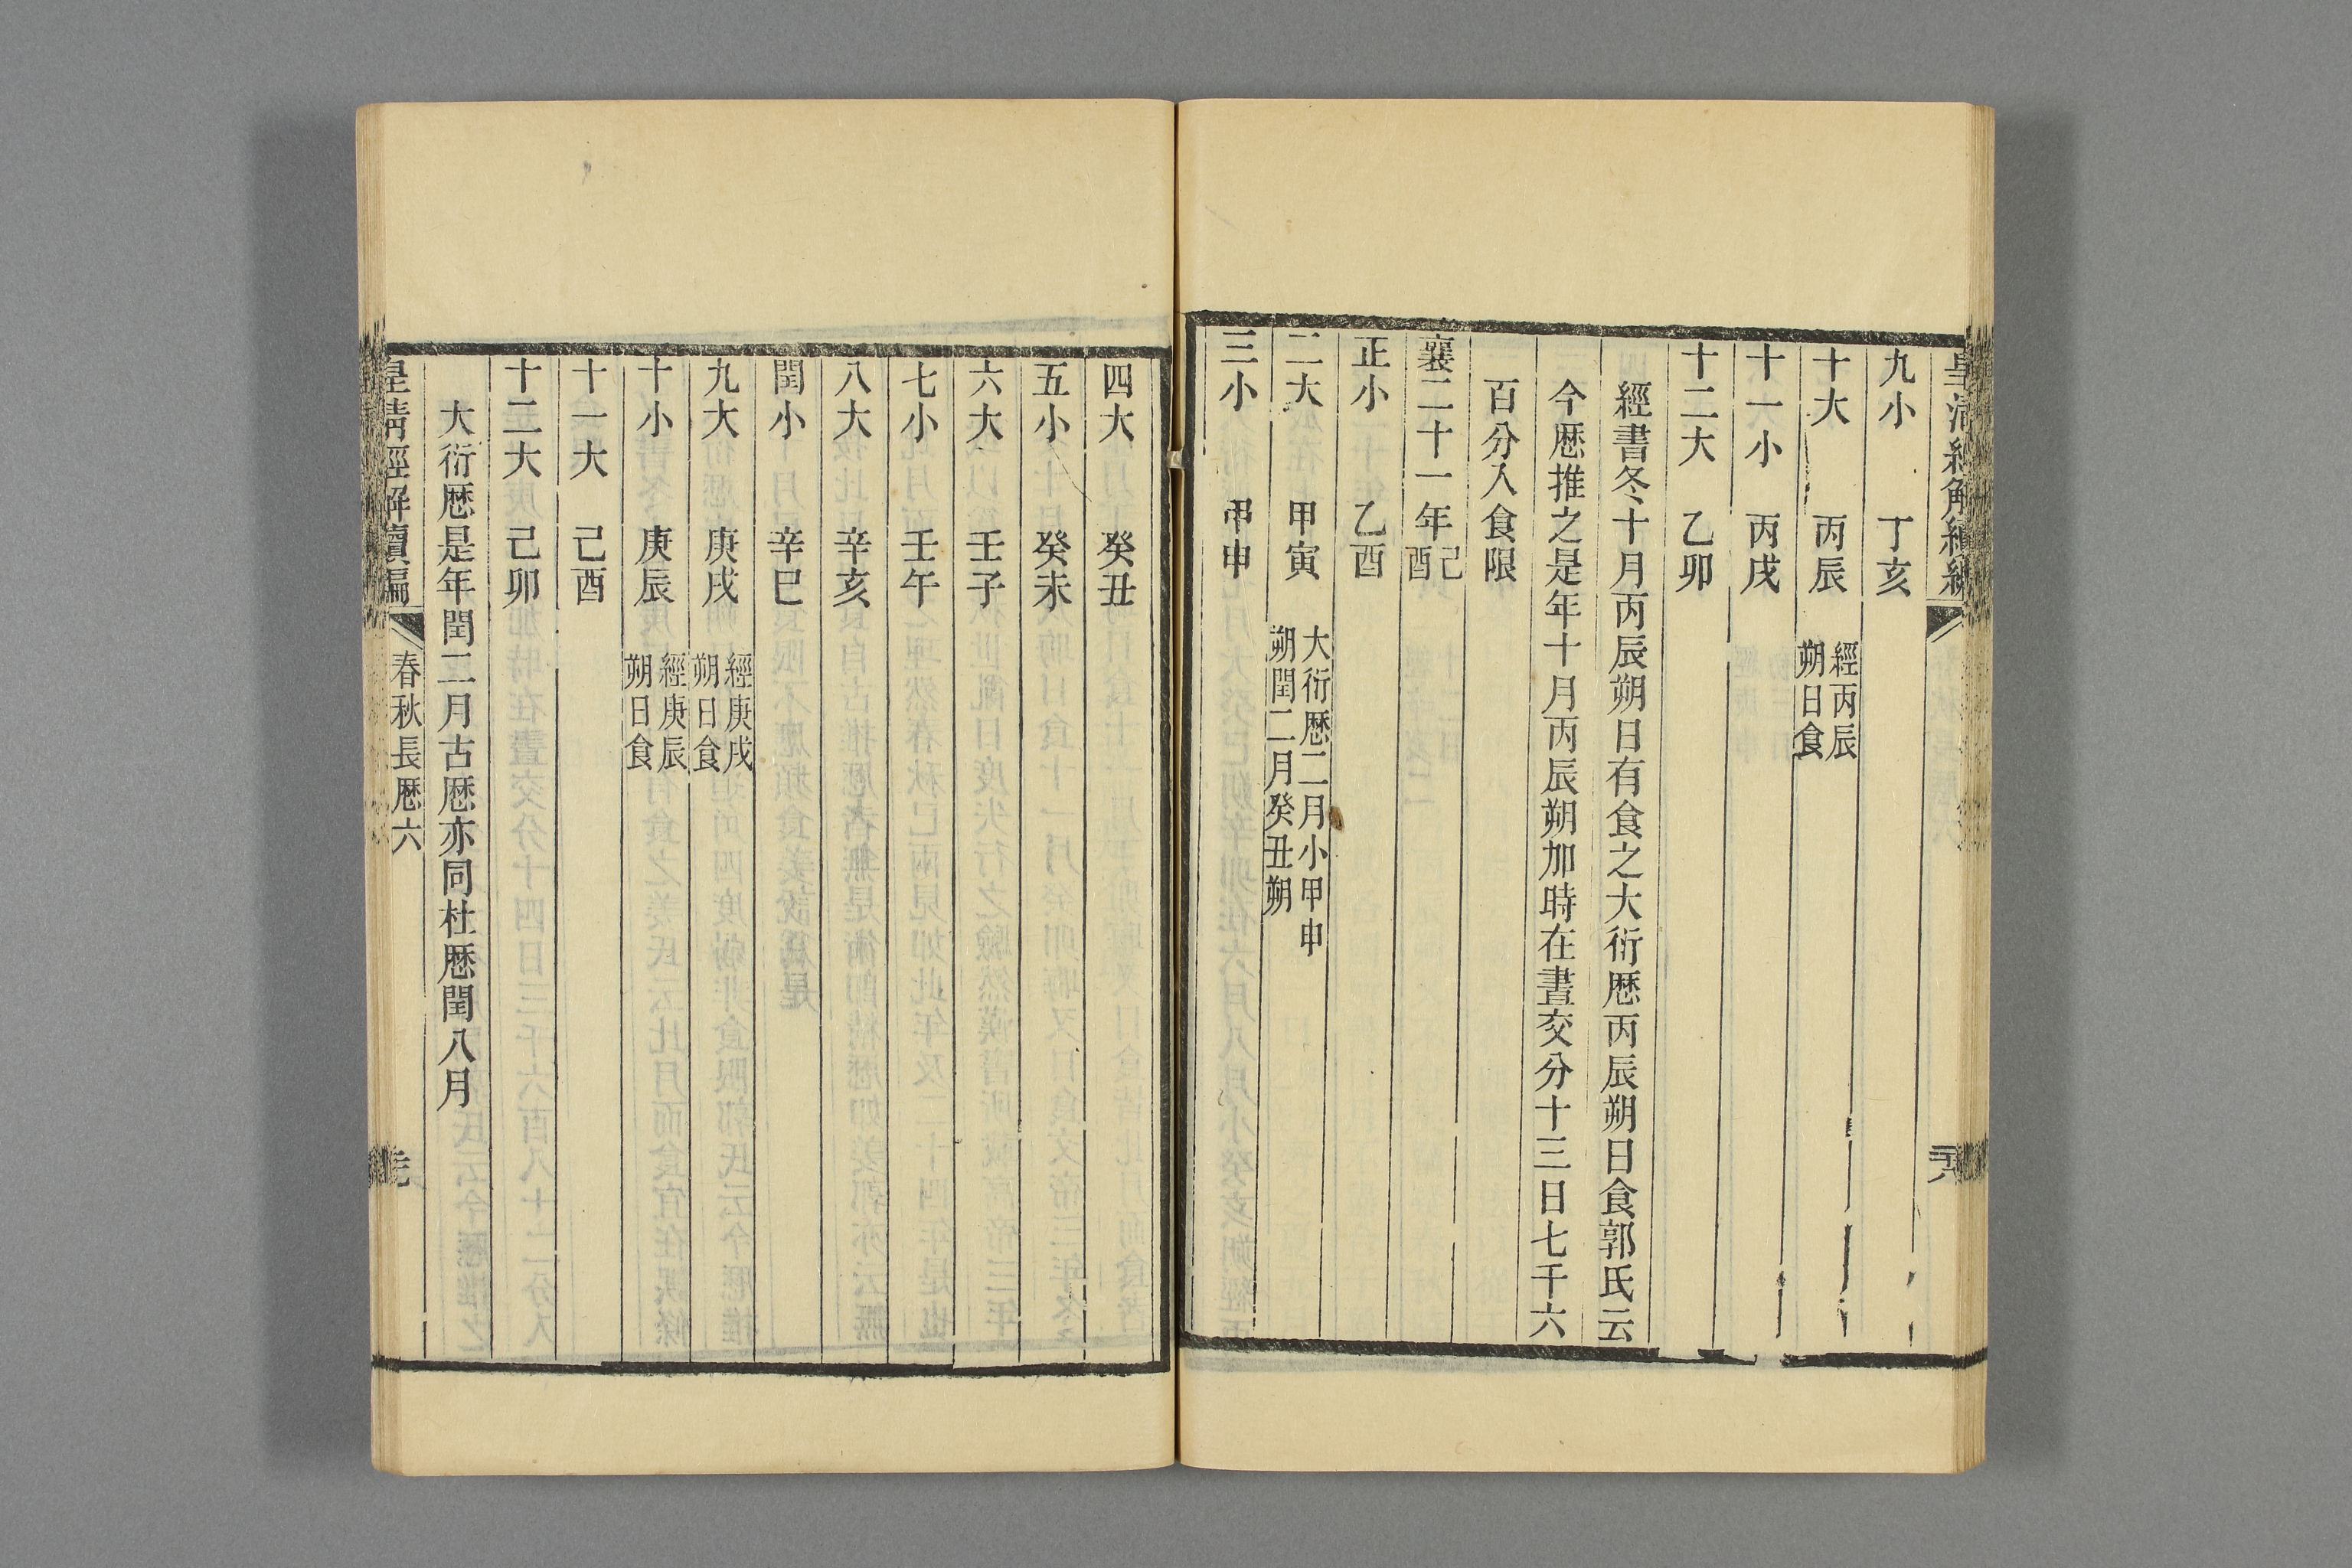 九小 丁亥
十大 丙辰 經丙辰朔日食
十一小 丙戌
十二大 乙卯
經書冬十月丙辰朔日有食之大衍厯丙辰朔日食郭氏云
今厯推之是年十月丙辰朔加時在晝交分十三日七千六
百分入食限
襄二十一年己酉
正小 乙酉
二大 甲寅 大衍厯二月小甲申朔閏二月癸丑朔
三小 甲申
四大 癸丑
五小 癸未
六大 壬子
七小 壬午
八大 辛亥
閏小 辛巳
九大 庚戌 經庚戌朔日食
十小 庚辰 經庚辰朔日食
十一大 己酉
十二大 己卯
大衍厯是年閏二月古厯亦同杜厯閏八月
皇清經解續編 春秋長厯六